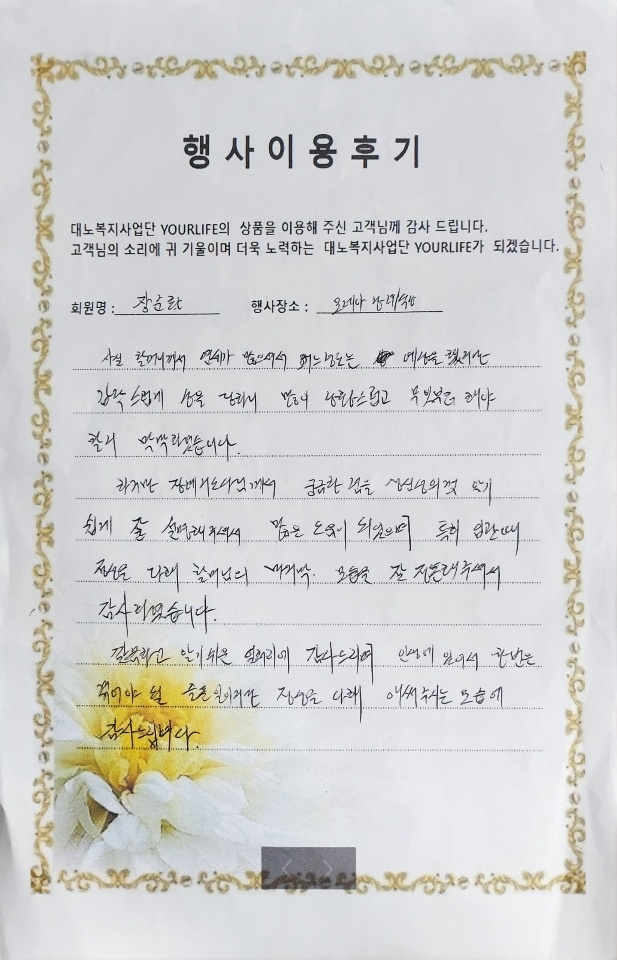 행사이용후기
대노복지사업단 YOURLIFE의 상품을 이용해 주신 고객님께 감사 드립니다.
고객님의 소리에 귀 기울이며 더욱 노력하는 대노복지사업단 YOURLIFE가 되겠습니다.
회원명 : 장순락 행사장소 : 장례식장
사실 할머니께서 연세가 많으셔서 어느정도는 예상을 했지만
갑작스럽게 상을 당하니 많이 당황스럽고 무엇부터 해야
할지 막막하였습니다.
하지만 장례지도사님께서 궁금한 점을 성심성의껏 알기
쉽게 잘 설명해주셔서 많은 도움이 되었으며 특히 입관때
정성을 다해 할머님의 마지막 모습을 잘 해주셔서
감사하였습니다.
깔끔하고 알기쉬운 감사드리며 인생에 있어서 한번은
겪어야 될 슬픈일이지만 정성을 다해 애써주시는 모습에
감사드립니다.